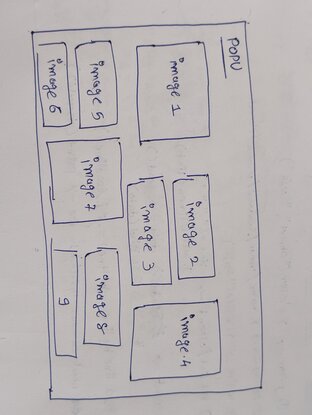 POPU
image 1
image 2
image 3
image.4
image 5
image 6
image 7
image 8
9